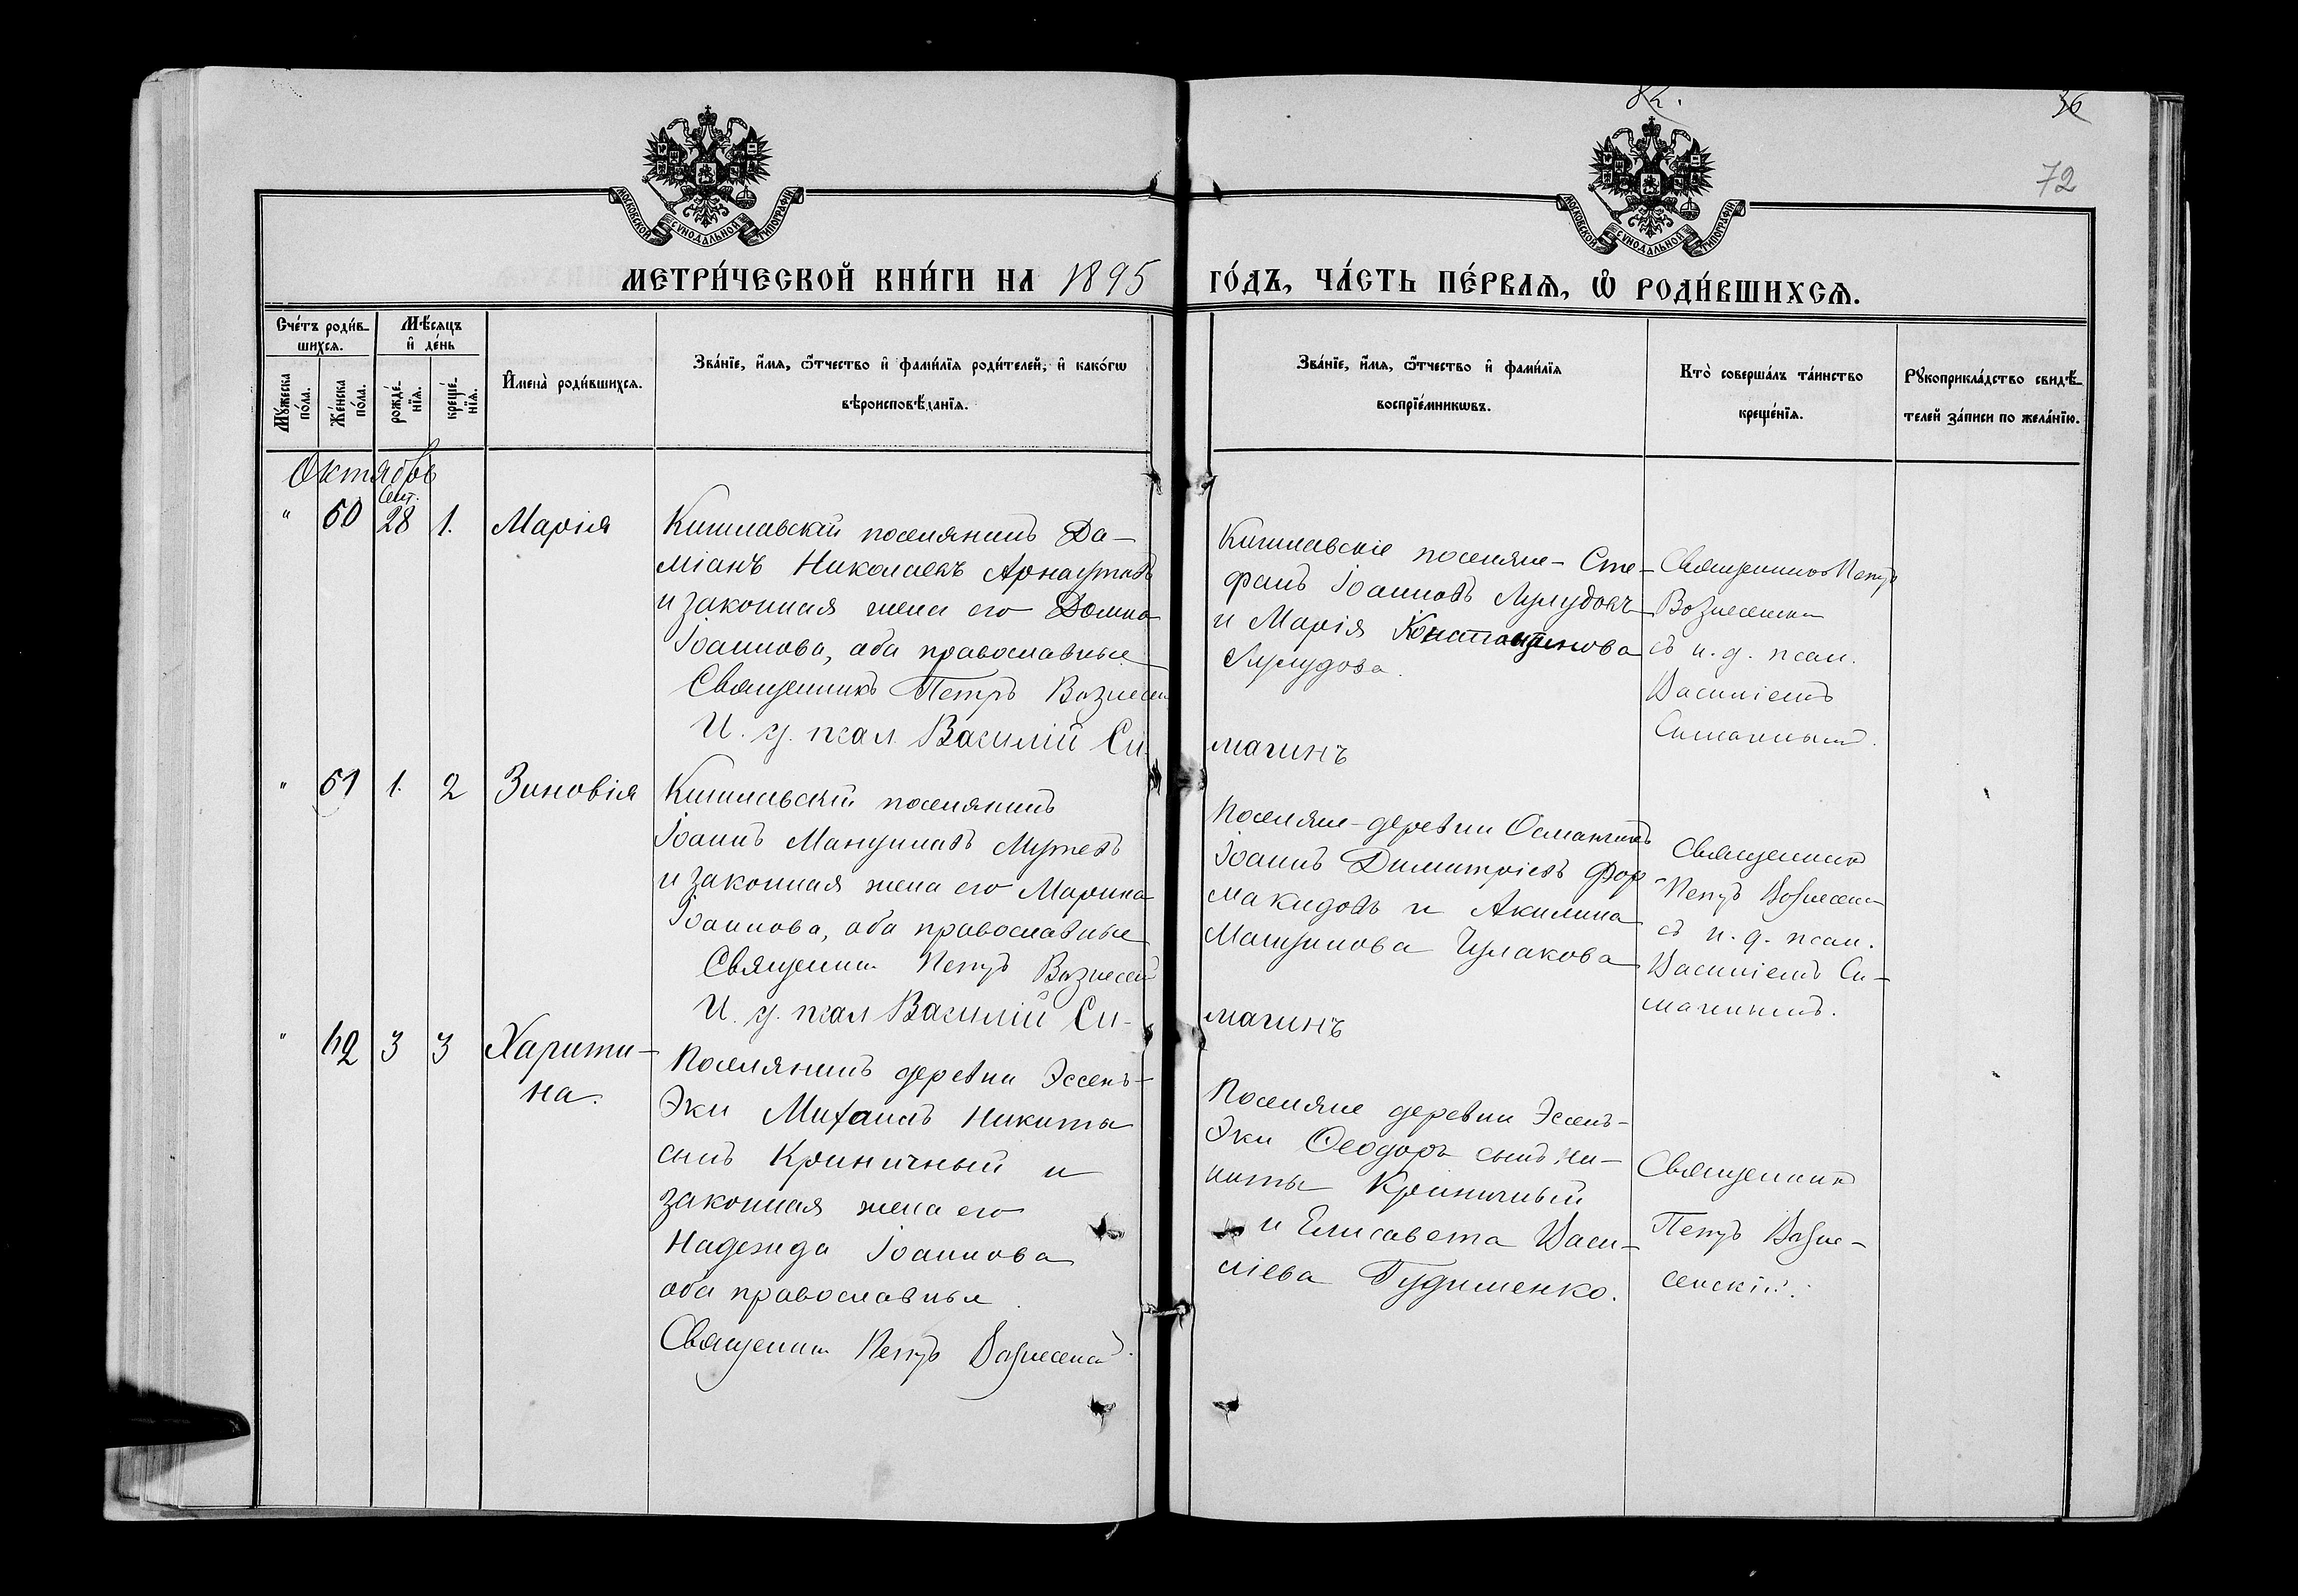 82.
36
72
МОСКОВСКОЙ СѴНОДАЛЬНОЙ ТИПОГРАФІИ
МОСКОВСКОЙ СѴНОДАЛЬНОЙ ТИПОГРАФІИ
МЕТРИ́ЧЕСКОЙ КНИ́ГИ НА 1895 ГО́ДЪ, ЧА́СТЬ ПЕ́РВАѦ, Ѽ РОДИ́ВШИХСѦ.
Сче́тъ роди́в-
шихсѧ.
Мѣ́сѧцъ
и҆ де́нь
Мꙋ́жеска
по́ла.
Же́нска
по́ла.
рожде́-
нїѧ.
креще́-
нїѧ.
И҆мена̀ роди́вшихсѧ.
Зва́нїе, и҆́мѧ, ѻ҆́тчество и҆ фами́лїѧ роди́телей, и҆ како́гѡ
вѣроисповѣ́данїѧ.
Зва́нїе, и҆́мѧ, ѻ҆́тчество и҆ фами́лїѧ
воспрїе́мникѡвъ.
Кто̀ соверша́лъ та́инство
креще́нїѧ.
Рꙋкоприкла́дство свидѣ́-
телей за́писи по жела́нїю.
Октябрь
Сент.
" 60 28 1. Марія
Кишлавскій поселянинъ Да-
міанъ Николаевъ Арнаутовъ
и законная жена его Домна
Іоаннова, оба православные
Священникъ Петръ Вознесен
И. д. псал. Василій Си-
магинъ
Кишлавскіе поселяне - Сте-
фанъ Іоанновъ Лулудовъ
и Марія Константинова
Лулудова.
Священникъ Петръ
Вознесенски
съ и. д. псал.
Василіемъ
Симагинымъ.
" 61 1. 2 Зиновія
Кишлавскій поселянинъ
Іоаннъ
и законная жена его Марина
Іоаннова, оба православные
Священник Петръ Вознесен
И. д. псал Василій Си-
магинъ
Поселяне - деревни
Іоаннъ Димитріевъ Фор-
макидовъ и Акилина
Чулакова
Священникъ
Петръ Вознесенс
съ и. д. псал.
Василіемъ Си-
магинымъ.
" 62 3 3 Харити-
на.
Поселянинъ деревни Эссенъ-
Эки Михаилъ Никиты
сынъ Криничный и
законная жена его
Надежда Іоаннова
оба православные.
Священник Петръ Вознесенскій.
Поселяне деревни Эссенъ-
Эки Ѳеодоръ сынъ Ни-
киты Криничный
и Елисавета Васи-
ліева Гудименко.
Священникъ
Петръ Возне-
сенскій.